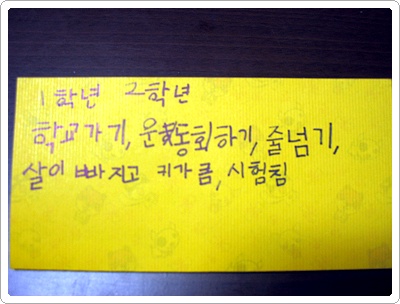 1학년 2학년
학교가기, 운동회하기, 줄넘기,
살이 빠지고 키가 큼, 시험침